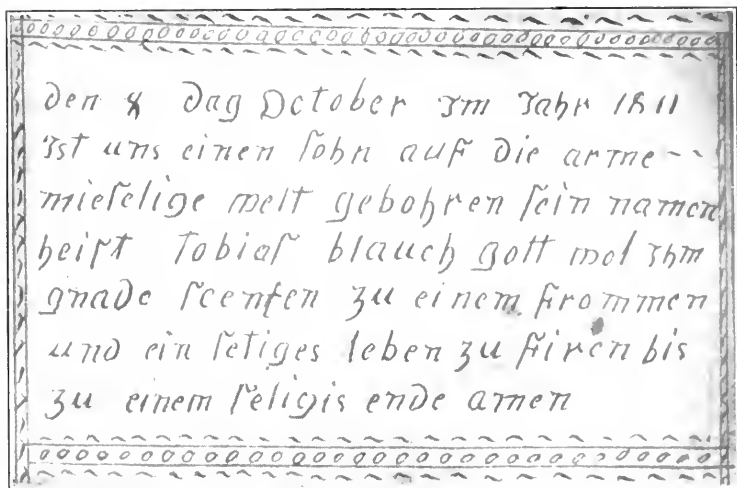 Den 8 Dag October Im Jahr 1811
Ist uns einen sohn auf die arme--
mieselige welt gebohren sein namen
heist Tobias blauch gott wol Ihm
gnade scenken zu einem frommen
und ein seliges leben zu firen bis
zu einem seligis ende amen